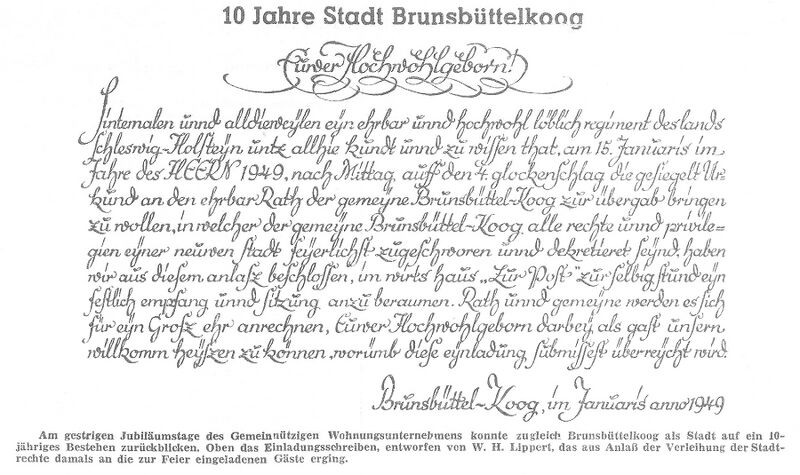 10 Jahre Stadt Brunsbüttelkoog
Euwer Hochwohlgeborn!
Sintemalen unnd alldieweylen eyn ehrbar unnd hochwohl löblich regiment des lands
schleswig-Holsteyn untz allhie kundt unnd zu wissen that, am 15. Januaris im
Jahre des HEERN 1949, nach Mittag, auff den 4. glockenschlag die gesiegelt Ur-
kund an den ehrbar Rath der gemeyne Brunsbüttel-Koog zur übergab bringen
zu wollen, in welcher der gemeyne Brunsbüttel-Koog alle rechte unnd privile-
gien eyner neuwen stadt feyerlichst zugeschworen unnd dekretieret seynd, haben
wir aus diesem anlasz beschlossen, im wirts haus „Zur Post" zur selbig stund eyn
festlich empfang unnd sitzung anzu beraumen. Rath unnd gemeyne werden es sich
für eyn Grosz ehr anrechnen, Euwer Hochwohlgeborn darbey, als gast unsern
willkomm heyszen zu können, worümb diese eynladung submissest überreycht wird.
Brunsbüttel-Koog, im Januaris anno 1949
Am gestrigen Jubiläumstage des Gemeinnützigen Wohnungsunternehmens konnte zugleich Brunsbüttelkoog als Stadt auf ein 10-
jähriges Bestehen zurückblicken. Oben das Einladungsschreiben, entworfen von W. H. Lippert, das aus Anlaß der Verleihung der Stadt-
rechte damals an die zur Feier eingeladenen Gäste erging.